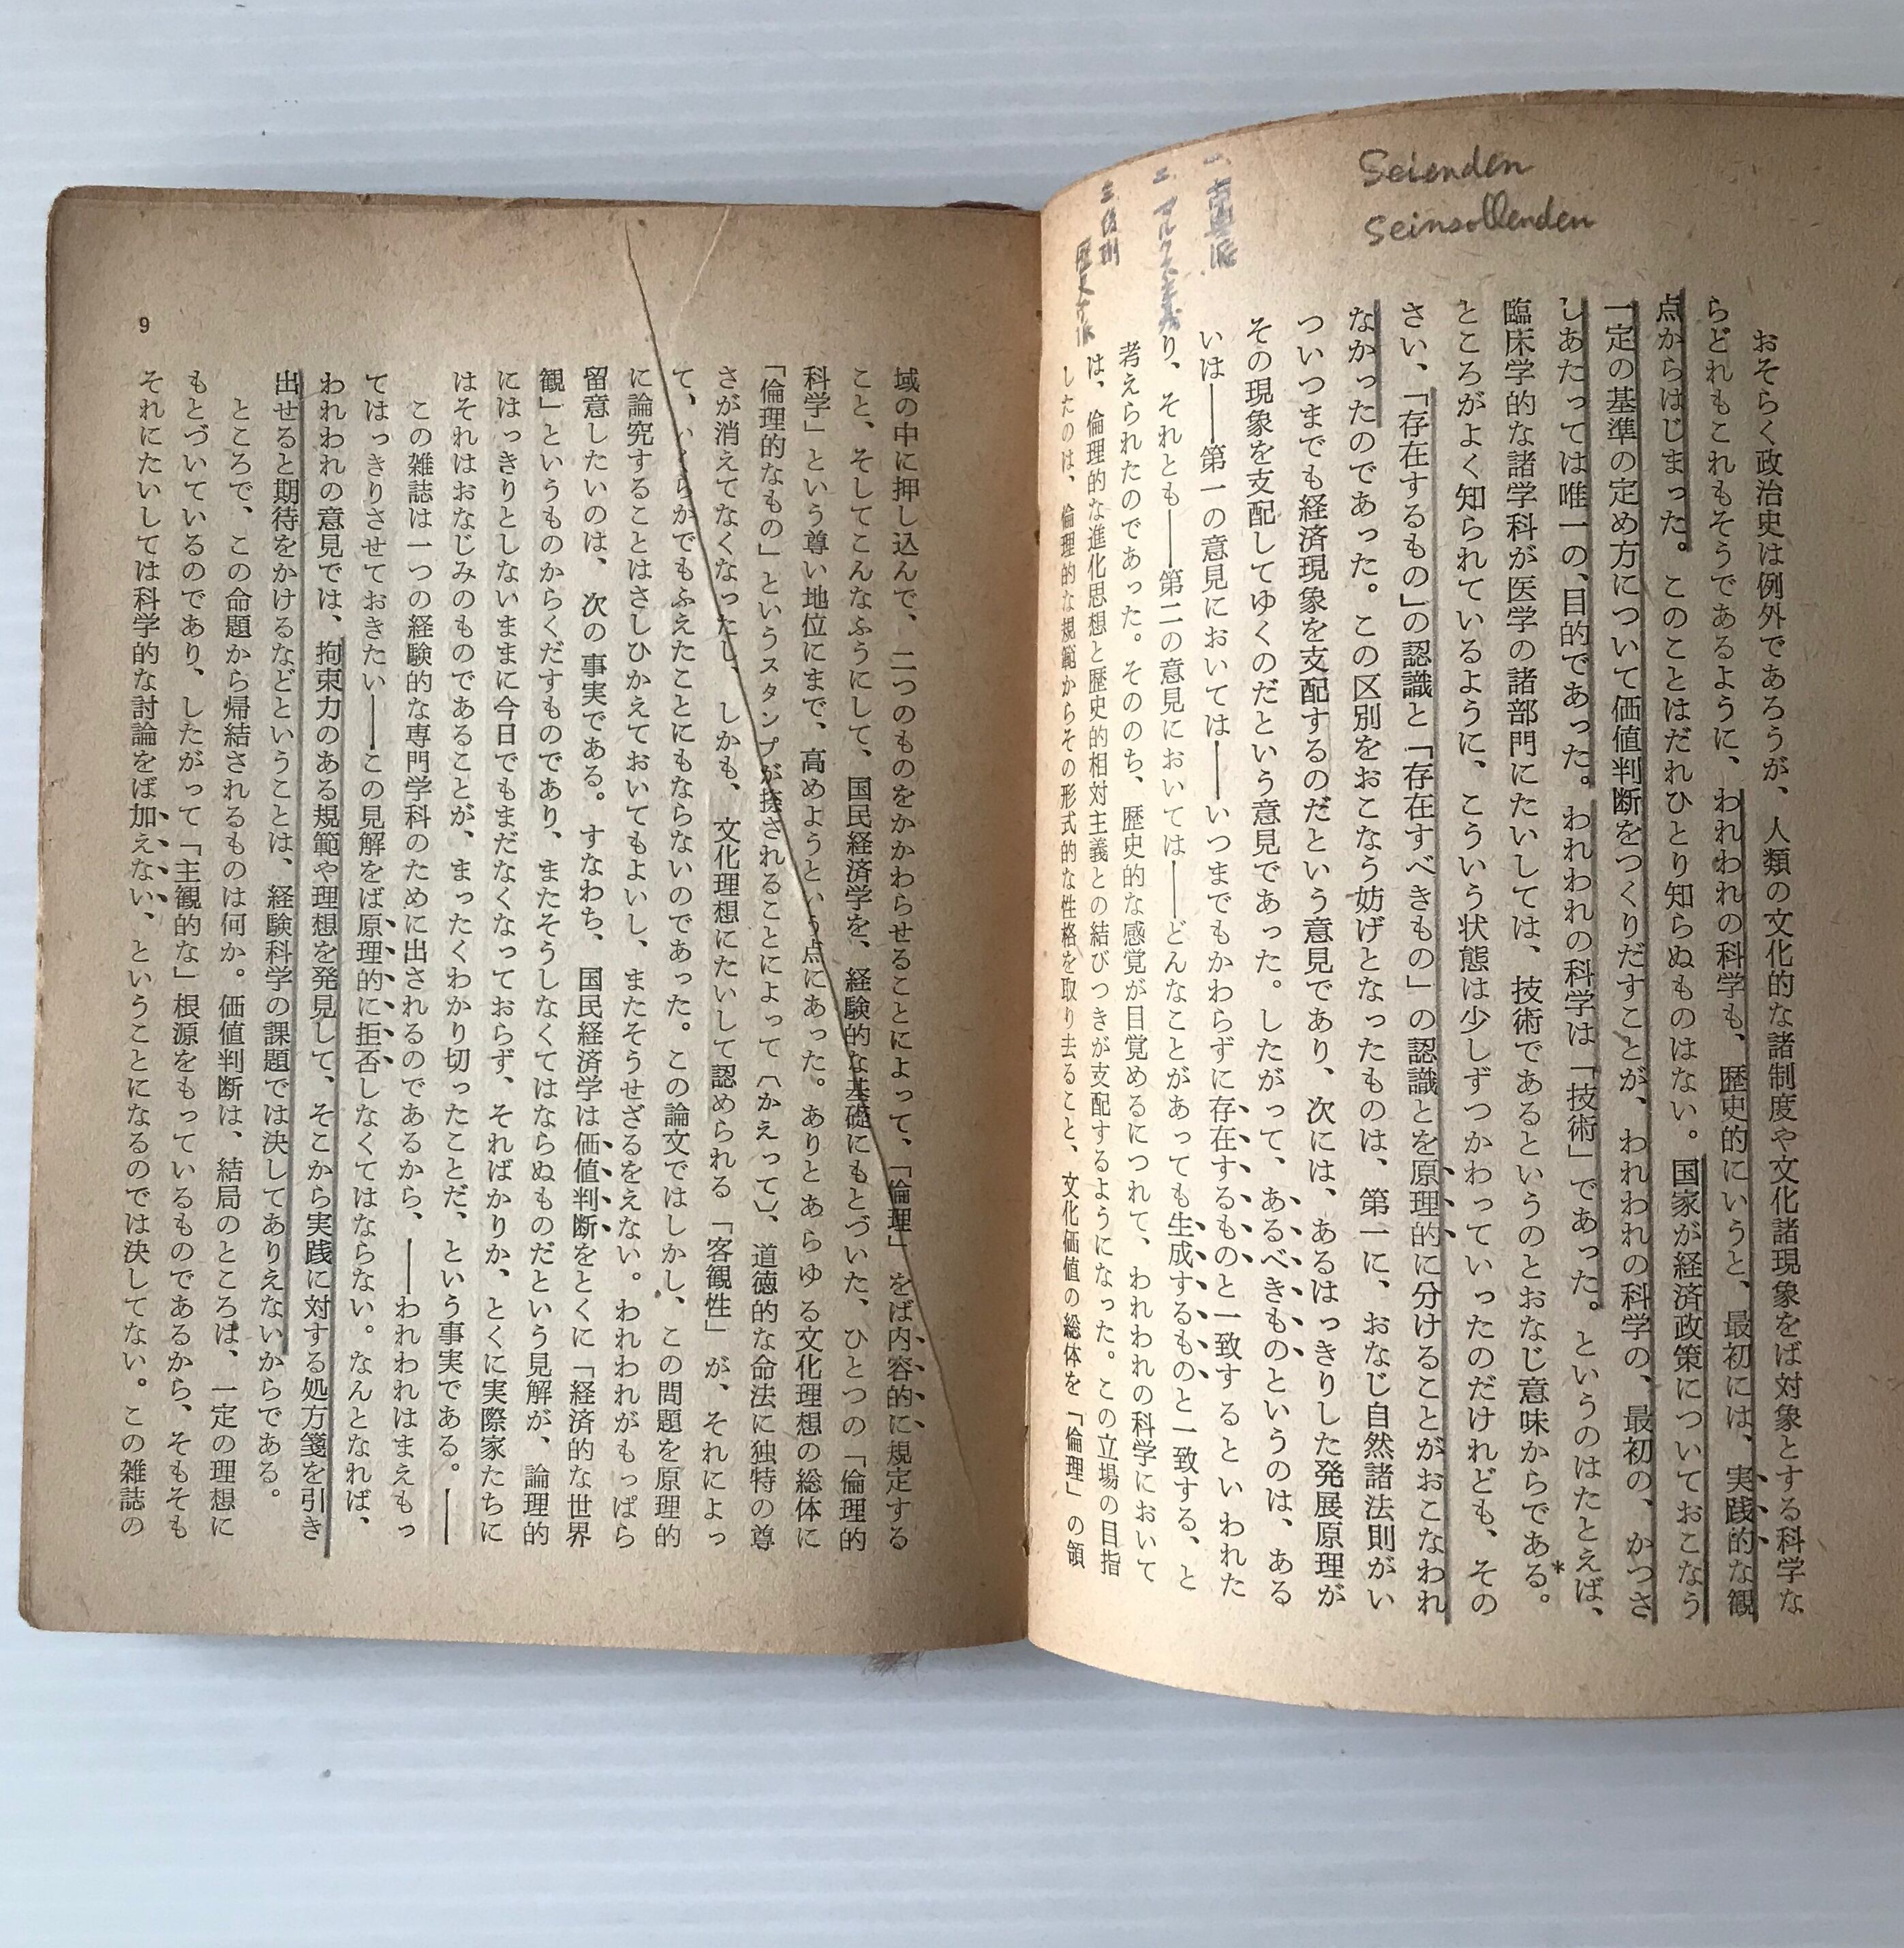 Seienden
Seinsollenden
一、古典派
二、マルクス主義
三、後期
歴史学派
おそらく政治史は例外であろうが、人類の文化的な諸制度や文化諸現象をば対象とする科学な
らどれもこれもそうであるように、われわれの科学も、歴史的にいうと、最初には、実践的な観
点からはじまった。このことはだれひとり知らぬものはない。国家が経済政策についておこなう
一定の基準の定め方について価値判断をつくりだすことが、われわれの科学の、最初の、かつさ
しあたっては唯一の、目的であった。われわれの科学は「技術」であった。というのはたとえば、
臨床学的な諸学科が医学の諸部門にたいしては、技術であるというのとおなじ意味からである。*
ところがよく知られているように、こういう状態は少しずつかわっていったのだけれども、その
さい、「存在するもの」の認識と「存在すべきもの」の認識とを原理的に分けることがおこなわれ
なかったのであった。この区別をおこなう妨げとなったものは、第一に、おなじ自然諸法則がい
ついつまでも経済現象を支配するのだという意見であり、次には、あるはっきりした発展原理が
その現象を支配してゆくのだという意見であった。したがって、あるべきものというのは、ある
いは――第一の意見においては――いつまでもかわらずに存在するものと一致するといわれた
り、それとも――第二の意見においては――どんなことがあっても生成するものと一致する、と
考えられたのであった。そののち、歴史的な感覚が目覚めるにつれて、われわれの科学において
は、倫理的な進化思想と歴史的相対主義との結びつきが支配するようになった。この立場の目指
したのは、倫理的な規範からその形式的な性格を取り去ること、文化価値の総体を「倫理」の領
域の中に押し込んで、二つのものをかかわらせることによって、「倫理」をば内容的に規定する
こと、そしてこんなふうにして、国民経済学を、経験的な基礎にもとづいた、ひとつの「倫理的
科学」という尊い地位にまで、高めようという点にあった。ありとあらゆる文化理想の総体に
「倫理的なもの」というスタンプが捺されることによって〔かえって〕、道徳的な命法に独特の尊
さが消えてなくなったし、しかも、文化理想にたいして認められる「客観性」が、それによっ
て、いくらかでもふえたことにもならないのであった。この論文ではしかし、この問題を原理的
に論究することはさしひかえておいてもよいし、またそうせざるをえない。われわれがもっぱら
留意したいのは、次の事実である。すなわち、国民経済学は価値判断をとくに「経済的な世界
観」というものからくだすものであり、またそうしなくてはならぬものだという見解が、論理的
にはっきりとしないままに今日でもまだなくなっておらず、それぱかりか、とくに実際家たちに
はそれはおなじみのものであることが、まったくわかり切ったことだ、という事実である。――
この雑誌は一つの経験的な専門学科のために出されるのであるから、――われわれはまえもっ
てはっきりさせておきたい――この見解をば原理的に拒否しなくてはならない。なんとなれば、
われわれの意見では、拘束力のある規範や理想を発見して、そこから実践に対する処方箋を引き
出せると期待をかけるなどということは、経験科学の課題では決してありえないからである。
ところで、この命題から帰結されるものは何か。価値判断は、結局のところは、一定の理想に
もとづいているのであり、したがって「主観的な」根源をもっているものであるから、そもそも
それにたいしては科学的な討論をば加えない、ということになるのでは決してない。この雑誌の
9